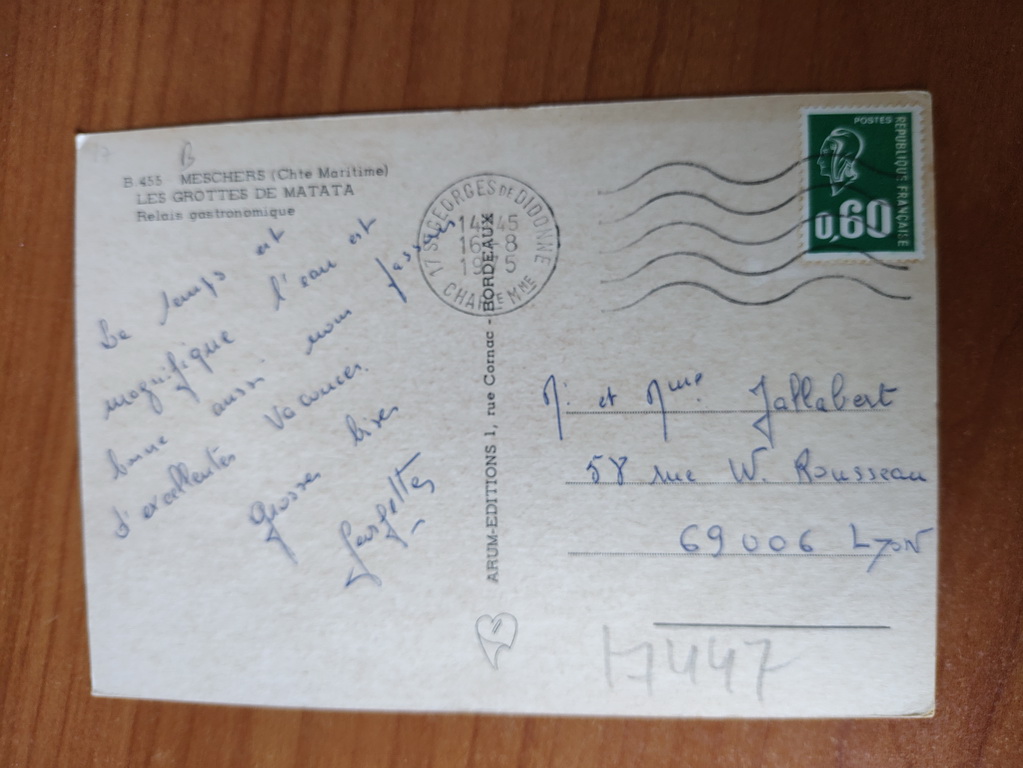 B.455 MESCHERS (Chte Maritime)
LES GROTTES DE MATATA
Relais gastronomique
Le temps est
magnifique l'eau est
bonne aussi nous passons
d'excellentes vacances.
Grosses bises
ARUM-EDITIONS 1, rue Cornac - BORDEAUX
17 ST GEORGES DE DIDONNE
14 45
16 8
19 5
CHARTE MME
POSTES
REPUBLIQUE FRANÇAISE
0,60
M. et Mme Jallabert
58 rue W. Rousseau
69006 LYON
17447